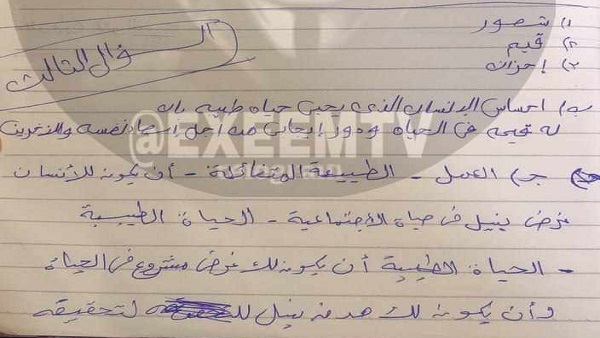 السؤال الثالث
١) شعور
٢) قيم
٣) إحزان
ب) احساس الإنسان الذي يحيى حياه طيبه بأن
له قيمه في الحياه ودور إيجابي من أجل إسعاد نفسه والآخرين
جـ) العمل - الطبيعة المتفائلة - أن يكون للأنسان
غرض نبيل في حياة الاجتماعية - الحياة الطيبة
- الحياة الطيبة أن يكون لك غرض مشروع في الحياة
وأن يكون لك هدف نبيل لتحقيقه
@EXEEMTV